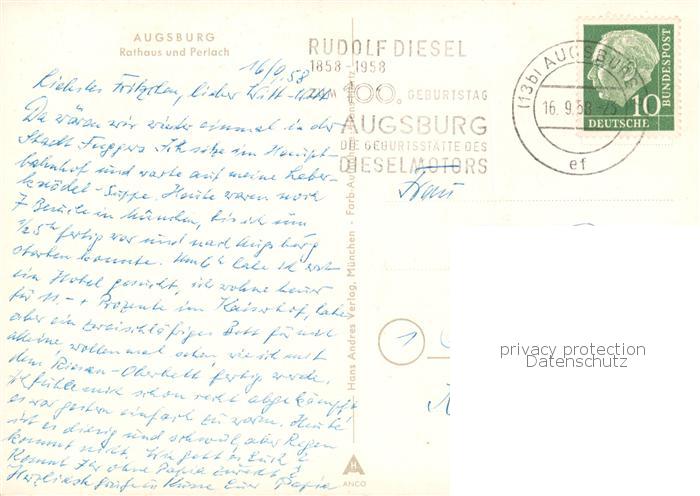 AUGSBURG
Rathaus und Perlach
16/9.58
Liebstes Fritzchen, lieber
Da wären wir wieder einmal in der
Stadt Fuggers. Ich sitze im Haupt-
bahnhof und warte auf meine Leber-
knödel-Suppe. Heute waren noch
7 Besuche in München, bis ich um
1/2 5h fertig war und nach Augsburg
starten konnte. Um 6h habe ich
ein Hotel gesucht, ich wohne heuer
für 11.- + Prozente im Kaiserhof, habe
aber ein zweischläfriges Bett für mich
alleine, wollen mal sehen, wie ich mit
dem Riesen-Oberbett fertig werde.
Ich fühle mich schon recht abgekämpft
es war gestern einfach zu warm. Heute
ist es diesig und schwül, aber Regen
kommt nicht. Wie geht es Euch?
Kommt Ihr ohne Papa zurecht?
Herzliche Grüße Küsse Euer Papa
Hans Andres Verlag, München - Farb-Aufnahme
H
ANCO
RUDOLF DIESEL
1858-1958
ZUM 100. GEBURTSTAG
AUGSBURG
DIE GEBURTSSTÄTTE DES
DIESELMOTORS
(13b) AUGSBURG
16. 9.58
ef
DEUTSCHE
BUNDESPOST
10
Frau
privacy protection
Datenschutz